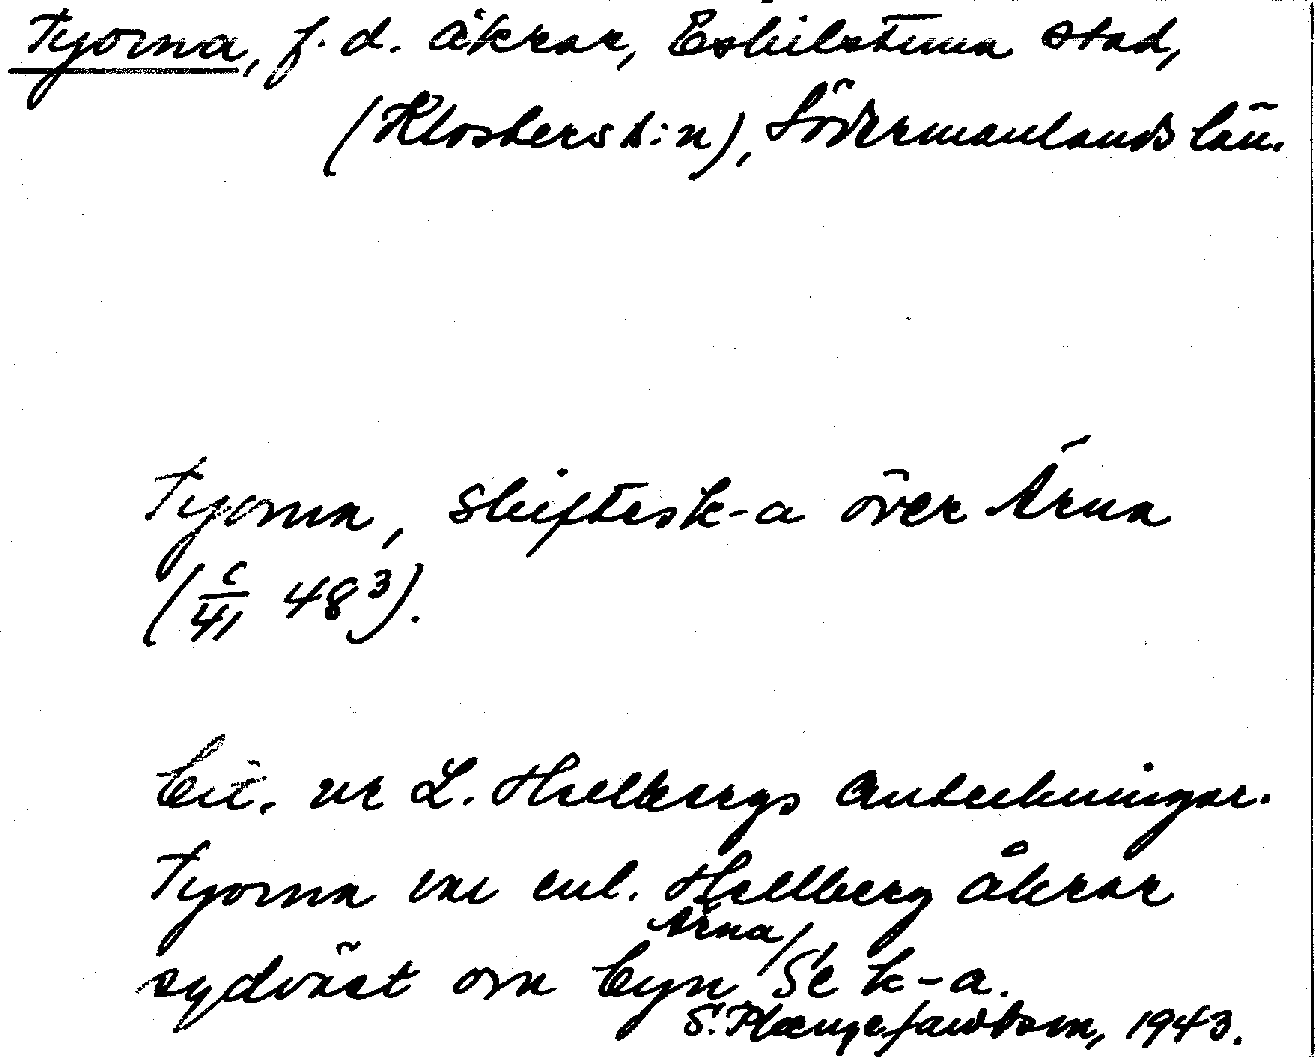 Tyorna, f. d. åkrar, Eskilstuna stad,
(Klosters s:n), Södermanlands län.
Tyorna, skiftesk-a över Ärna
(C/41 48³).
Cit. ur L. Hellbergs anteckningar.
Tyorna var enl. Hellberg åkrar
Ärna/
sydväst om byn Se k-a.
S. 1943.